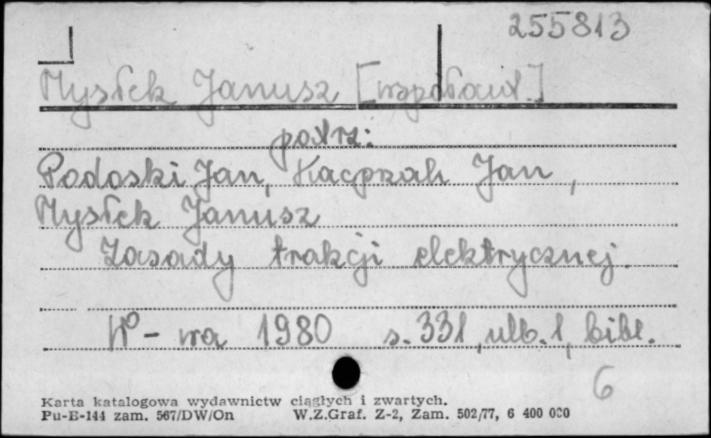 255813
Mysłek Janusz [współaut.]
patrz:
Podoski Jan, Kacprzak Jan,
Mysłek Janusz
Zasady trakcji elektrycznej.
W-wa 1980 s. 331, nlb. 1, bibl.
6
Karta katalogowa wydawnictw ciągłych i zwartych.
Pu-B-144 zam. 567/DW/On W.Z.Graf. Z-2, Zam. 502/77, 6 400 000